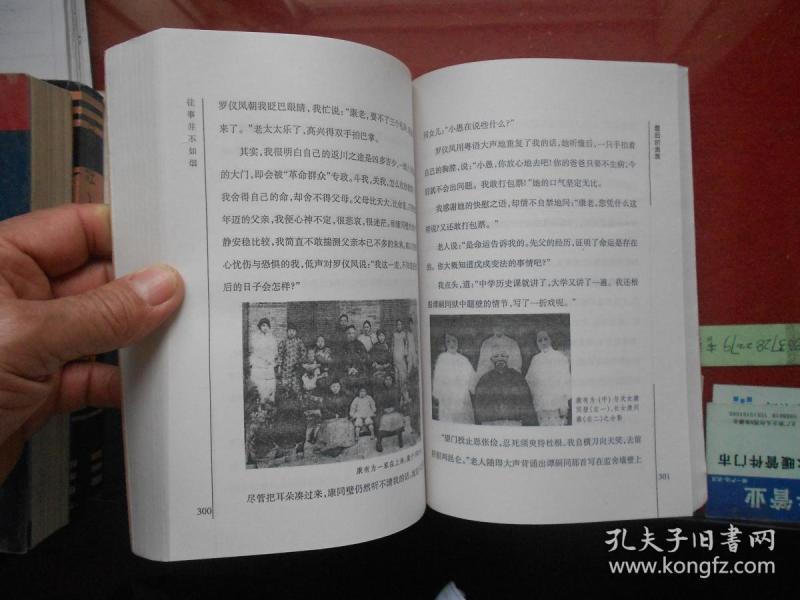 往事并不如烟
罗仪凤朝我眨巴眼睛，我忙说：“康老，要不了三个
来了。”老太太乐了，高兴得双手拍巴掌。
其实，我很明白自己的返川之途是凶多吉少，一
的大门，即会被“革命群众”专政。斗我，关我，怎么
我舍得自己的命，却舍不得父母。父母比天大，比
年迈的父亲，我便心神不定，很悲哀，很迷茫。
静安稳比较，我简直不敢揣测父亲本已不多的未来。
心忧伤与恐惧的我，低声对罗仪凤说：“我这一走，不
后的日子会怎样？”
康有为一家在上海，
尽管把耳朵凑过来，康同璧仍然听不清我的话，
300
最后的贵族
问女儿：“小愚在说些什么？”
罗仪凤用粤语大声地重复了我的话，她听懂后，一只手拍着
自己的胸膛，说：“小愚，你放心地去吧！你的爸爸只要不生病，今
后就不会出问题。我敢打包票！”她的口气坚定无比。
我感谢她的快慰之语，却情不自禁地问：“康老，您凭什么这
样说？又还敢打包票。”
老人说：“是命运告诉我的。先父的经历，证明了命运是存在
的。你大概知道戊戌变法的事情吧？”
我点头，道：“中学历史课就讲了，大学又讲了一遍。我还根
据谭嗣同狱中题壁的情节，写了一折戏呢。”
康有为（中）与次女康
同璧（左一）、长女康同
薇（右二）之合影
“望门投止思张俭，忍死须臾待杜根。我自横刀向天笑，去留
肝胆两昆仑。”老人随即大声背诵出谭嗣同那首写在监舍墙壁上
301
管业
水暖管件门市
孔夫子旧书网
www.kongfz.com